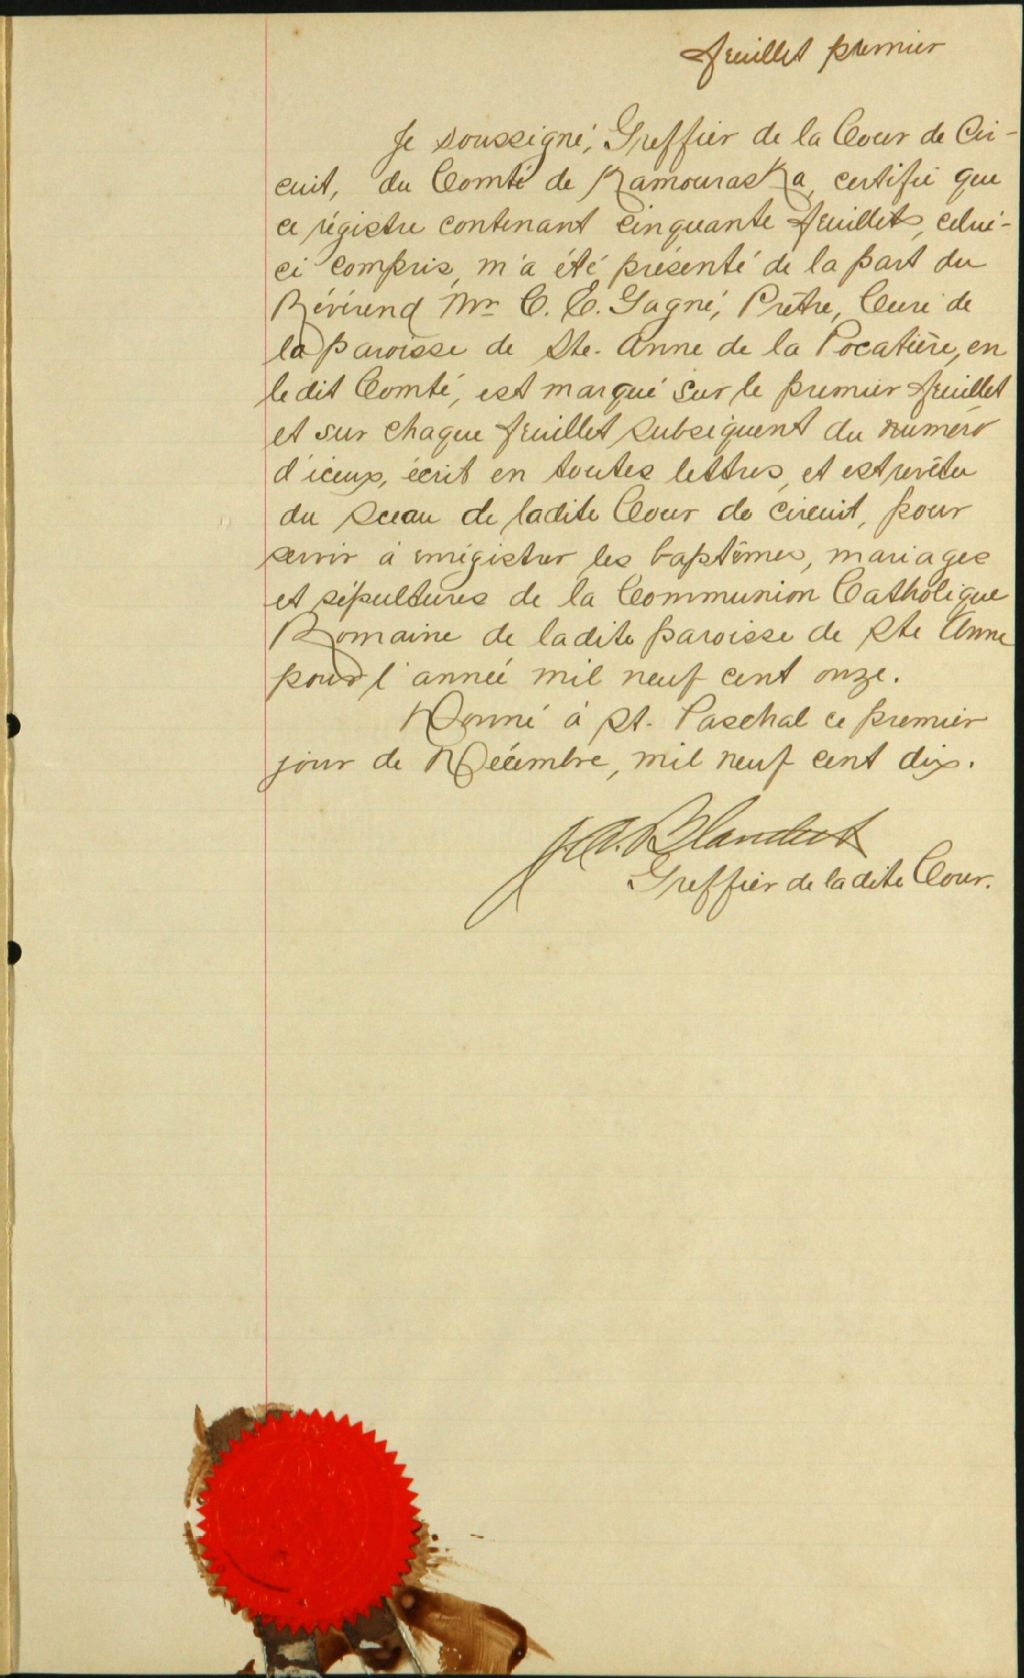 feuillet premier
Je soussigné, Greffier de la Cour de Cir-
cuit, du Comté de Kamouraska, certifie que
ce régistre contenant cinquante feuillets, celui-
ci compris, m'a été présenté de la part du
Révérend Mr C. E. Gagné, Prêtre, Curé de
la paroisse de Ste. Anne de la Pocatière, en
le dit Comté, est marqué sur le premier feuillet
et sur chaque feuillet subséquent du numéro
d'iceux, écrit en toutes lettres, et est revêtu
du Sceau de ladite Cour de circuit, pour
servir à enrégistrer les baptêmes, mariages
et sépultures de la Communion Catholique
Romaine de ladite paroisse de Ste Anne
pour l'année mil neuf cent onze.
Donné à St. Paschal ce premier
jour de Décembre, mil neuf cent dix.
Greffier de ladite Cour.